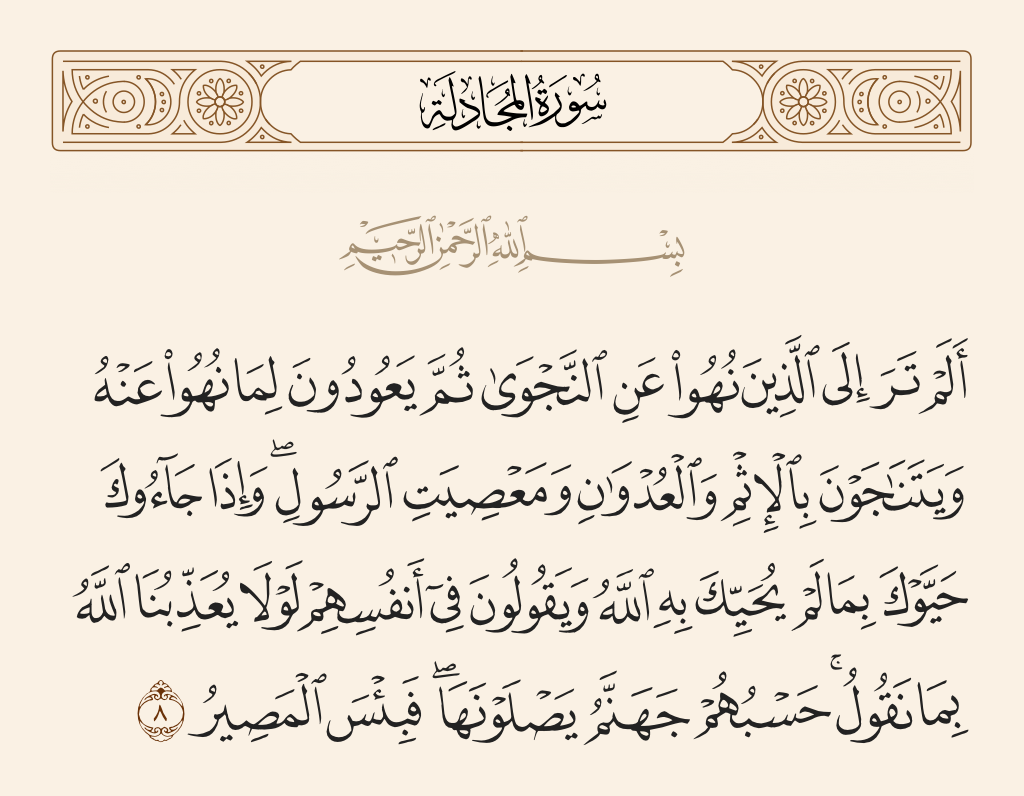 سُورَةُ المُجَادلَةِ
بِسْمِ ٱللَّهِ ٱلرَّحْمَٰنِ ٱلرَّحِيمِ
أَلَمْ تَرَ إِلَى ٱلَّذِينَ نُهُوا۟ عَنِ ٱلنَّجْوَىٰ ثُمَّ يَعُودُونَ لِمَا نُهُوا۟ عَنْهُ
وَيَتَنَٰجَوْنَ بِٱلْإِثْمِ وَٱلْعُدْوَٰنِ وَمَعْصِيَتِ ٱلرَّسُولِۖ وَإِذَا جَآءُوكَ
حَيَّوْكَ بِمَا لَمْ يُحَيِّكَ بِهِ ٱللَّهُ وَيَقُولُونَ فِىٓ أَنفُسِهِمْ لَوْلَا يُعَذِّبُنَا ٱللَّهُ
بِمَا نَقُولُۚ حَسْبُهُمْ جَهَنَّمُ يَصْلَوْنَهَاۖ فَبِئْسَ ٱلْمَصِيرُ ٨